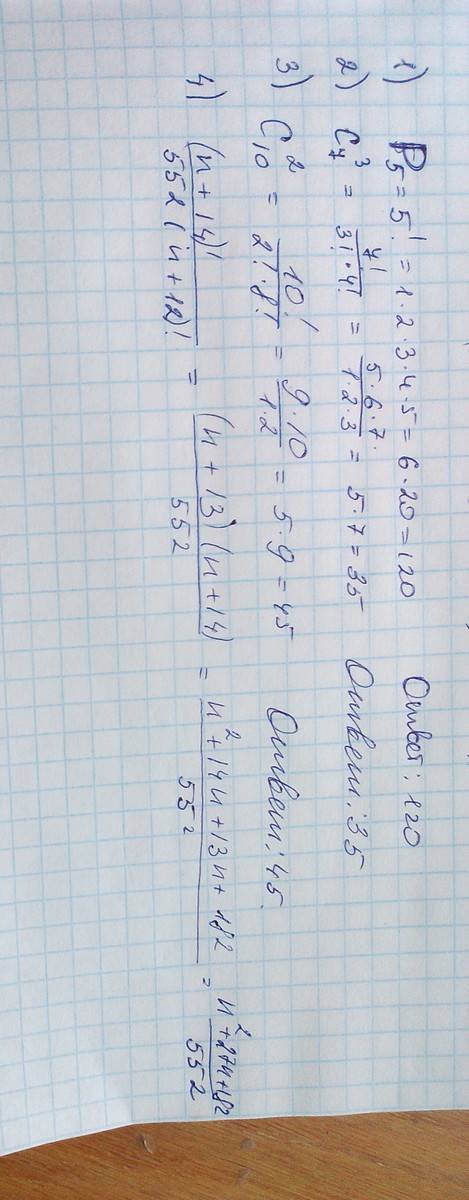 1) P₅ = 5! = 1·2·3·4·5 = 6·20 = 120 Ответ: 120
2) C₇³ = 7!/(3!·4!) = (5·6·7)/(1·2·3) = 5·7 = 35 Ответ: 35
3) C₁₀² = 10!/(2!·8!) = (9·10)/(1·2) = 5·9 = 45 Ответ: 45.
4) (n+14)!/(552(n+12)!) = ((n+13)(n+14))/552 = (n²+14n+13n+182)/552 = (n²+27n+182)/552